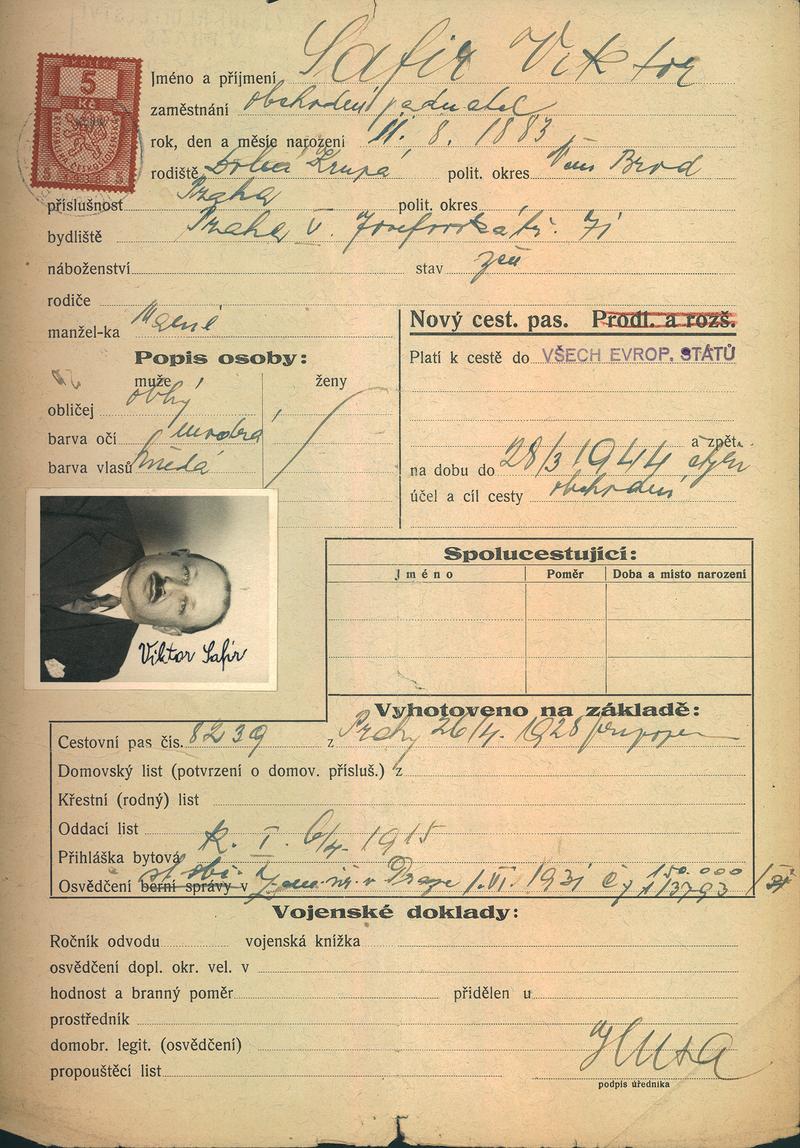 KOLEK
5
Kč
Jméno a příjmení Safir Viktor
zaměstnání obchodní jednatel
rok, den a měsíc narození 11. 8. 1883
rodiště Dolní Krupá polit. okres Něm Brod
příslušnost Praha polit. okres
bydliště Praha V. Josefovská tř. 71
náboženství stav žen
rodiče
manžel-ka
Nový cest. pas. Prodl. a rozš.
Platí k cestě do VŠECH EVROP. STÁTŮ
Popis osoby:
muže ženy
obličej oblý
barva očí modrá
barva vlasů hnědá
a zpět
na dobu do 28/3 1944
účel a cíl cesty obchodní
Viktor Safir
Spolucestující:
Jméno Poměr Doba a místo narození
Vyhotoveno na základě:
Cestovní pas čís. 8239 z Prahy 26/4. 1928
Domovský list (potvrzení o domov. přísluš.) z
Křestní (rodný) list
Oddací list
Přihláška bytová K. I. 6/4. 1915
Osvědčení berní správy v v Praze 1. VI. 1931 150.000
Vojenské doklady:
Ročník odvodu vojenská knížka
osvědčení dopl. okr. vel. v
hodnost a branný poměr přidělen u
prostředník
domobr. legit. (osvědčení)
propouštěcí list
podpis úředníka